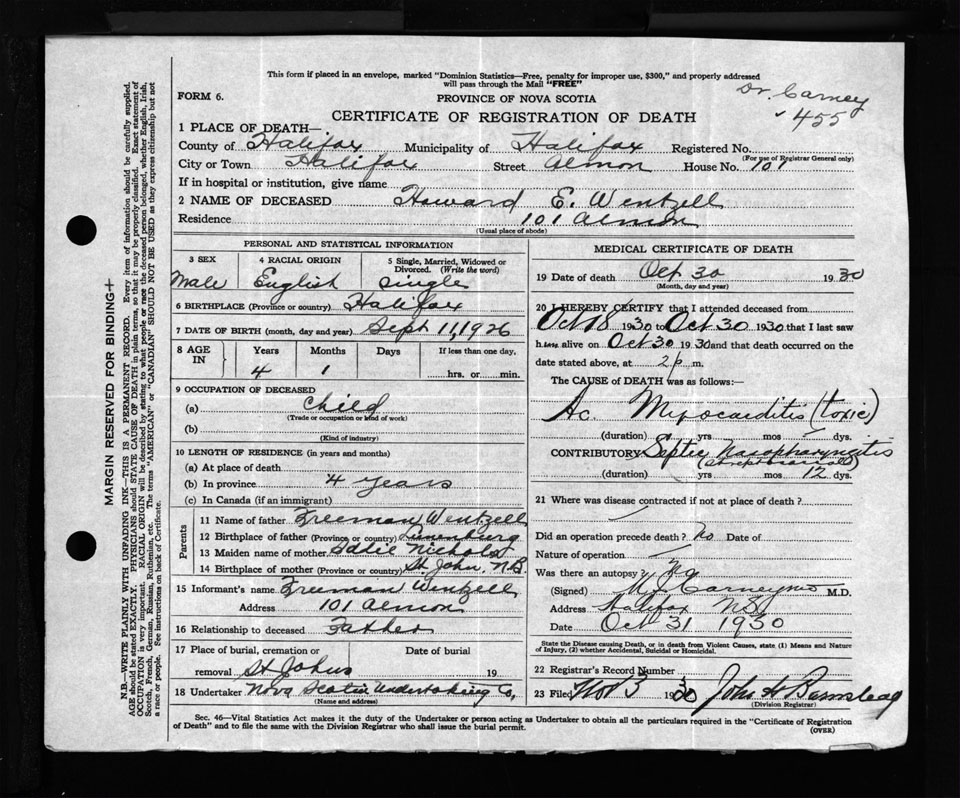 This form if placed in an envelope, marked "Dominion Statistics—Free, penalty for improper use, $300," and properly addressed
will pass through the Mail "FREE"
Dr. Carney
455
FORM 6.
PROVINCE OF NOVA SCOTIA
CERTIFICATE OF REGISTRATION OF DEATH
1 PLACE OF DEATH—
County of Halifax Municipality of Halifax Registered No.
(For use of Registrar General only)
City or Town Halifax Street Almon House No. 101
If in hospital or institution, give name
2 NAME OF DECEASED Howard E. Wentzell
Residence 101 Almon
(Usual place of abode)
PERSONAL AND STATISTICAL INFORMATION
3 SEX 4 RACIAL ORIGIN 5 Single, Married, Widowed or
Divorced. (Write the word)
Male English Single
6 BIRTHPLACE (Province or country) Halifax
7 DATE OF BIRTH (month, day and year) Sept 11, 1926
8 AGE IN Years Months Days If less than one day,
4 1 hrs. or min.
9 OCCUPATION OF DECEASED
(a) Child
(Trade or occupation or kind of work)
(b)
(Kind of industry)
10 LENGTH OF RESIDENCE (in years and months)
(a) At place of death
(b) In province 4 years
(c) In Canada (if an immigrant)
Parents
11 Name of father Freeman Wentzell
12 Birthplace of father (Province or country) Lunenburg
13 Maiden name of mother Sadie Nichols
14 Birthplace of mother (Province or country) St John. N.B.
15 Informant's name Freeman Wentzell
Address 101 Almon
16 Relationship to deceased Father
17 Place of burial, cremation or Date of burial
removal St Johns 19
18 Undertaker Nova Scotia Undertaking Co,
(Name and address)
MEDICAL CERTIFICATE OF DEATH
19 Date of death Oct 30 1930
(Month, day and year)
20 I HEREBY CERTIFY that I attended deceased from
Oct 18 1930 to Oct 30 1930 that I last saw
him alive on Oct 30 1930 and that death occurred on the
date stated above, at 2 p m.
The CAUSE of DEATH was as follows:
Ac. Myocarditis (toxic)
(duration) yrs mos dys.
CONTRIBUTORY Septic Nasopharyngitis
(duration) yrs mos 12 dys.
21 Where was disease contracted if not at place of death?
Did an operation precede death? No Date of
Nature of operation
Was there an autopsy? No
(Signed) Carney M.D.
Address Halifax N.S.
Date Oct 31 1930
State the Disease causing Death, or in death from Violent Causes, state (1) Means and Nature
of Injury, (2) whether Accidental, Suicidal or Homicidal.
22 Registrar's Record Number
23 Filed Nov 5 1930 John H Barnstead
(Division Registrar)
Sec. 46—Vital Statistics Act makes it the duty of the Undertaker or person acting as Undertaker to obtain all the particulars required in the "Certificate of Registration
of Death" and to file the same with the Division Registrar who shall issue the burial permit.
(OVER)
MARGIN RESERVED FOR BINDING+
N.B.—WRITE PLAINLY WITH UNFADING INK—THIS IS A PERMANENT RECORD. Every item of information should be carefully supplied.
AGE should be stated EXACTLY. PHYSICIANS should STATE CAUSE OF DEATH in plain terms, so that it may be properly classified. Exact statement of
OCCUPATION is very important. RACIAL ORIGIN will be described by stating to what people or race the deceased person belonged, whether English, Irish,
Scotch, French, German, Russian, Ruthenian, etc. The terms "AMERICAN" or "CANADIAN" SHOULD NOT BE USED as they express citizenship but not
a race or people. See instructions on back of Certificate.